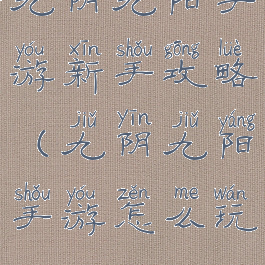 九阴九阳手
yóu xīn shǒu gōng luè
游新手攻略
jiǔ yīn jiǔ yáng
(九阴九阳
shǒu yóu zěn me wán
手游怎么玩